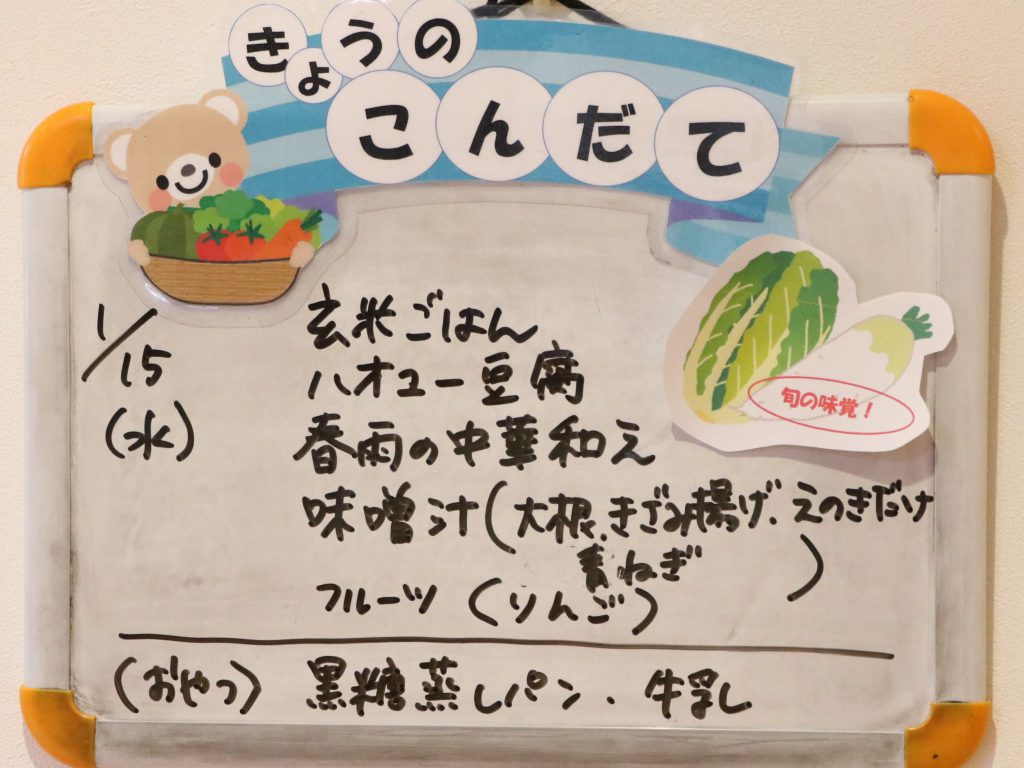 きょうの
こんだて
旬の味覚！
1/15
(水)
玄米ごはん
ハオユー豆腐
春雨の中華和え
味噌汁(大根、きざみ揚げ、えのきだけ
青ねぎ)
フルーツ(りんご)
(おやつ) 黒糖蒸しパン、牛乳